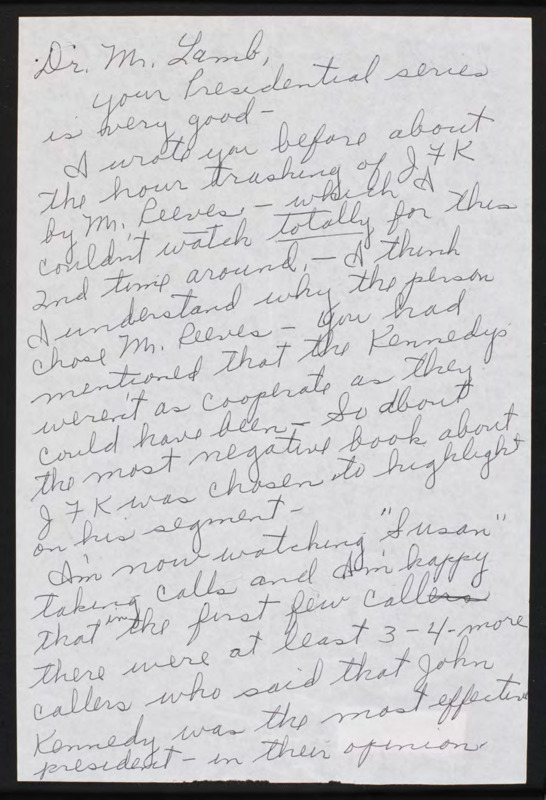 Dr. Mr. Lamb,
your Presidential series
is very good -
I wrote you before about
the hour trashing of JFK
by Mr. Reeves - which I
couldn't watch totally for this
2nd time around, - I think
I understand why the person
chose Mr. Reeves - you had
mentioned that the Kennedys
weren't as cooperate as they
could have been - So about
the most negative book about
JFK was chosen to highlight
on his segment -
I'm now watching "Susan"
taking calls and I'm happy
that in the first few callers
there were at least 3-4-more
callers who said that John
Kennedy was the most effective
president - in their opinion